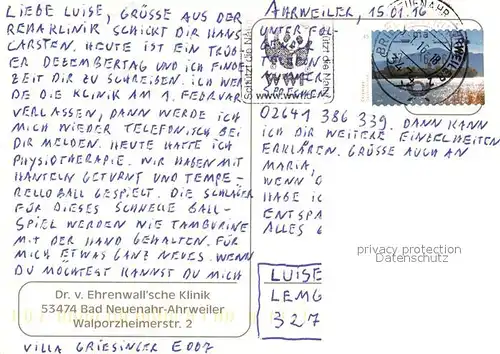 LIEBE LUISE, GRÜSSE AUS DER
REHAKLINIK SCHICKT DIR HANS
CARSTEN. HEUTE IST EIN TRÜB-
ER DEZEMBERTAG UND ICH FINDE
ZEIT DIR ZU SCHREIBEN. ICH WER
DE DIE KLINIK AM 1. FEBRUAR
VERLASSEN, DANN WERDE ICH
MICH WIEDER TELEFONISCH BEI
DIR MELDEN. HEUTE HATTE ICH
PHYSIOTHERAPIE. WIR HABEN MIT
HANTELN GETURNT UND TEMPE-
RELLOBALL GESPIELT. DIE SCHLÄGER
FÜR DIESES SCHNELLE BALL-
SPIEL WERDEN WIE TAMBURINE
MIT DER HAND GEHALTEN. FÜR
MICH ETWAS GANZ NEUES. WENN
DU MÖCHTEST KANNST DU MICH
Dr. v. Ehrenwall'sche Klinik
53474 Bad Neuenahr-Ahrweiler
Walporzheimerstr. 2
VILLA GRIESINGER E007
AHRWEILER, 15.01.16
UNTER FOL-
SPRECHEN
02641 386 339. DANN KANN
ICH DIR WEITERE EINZELHEITEN
ERKLÄREN. GRÜSSE AUCH AN
MARIA,
WENN
HABE
ENTSPA
ALLES
WWF
privacy protection
Datenschutz
LUISE
LEMG
327